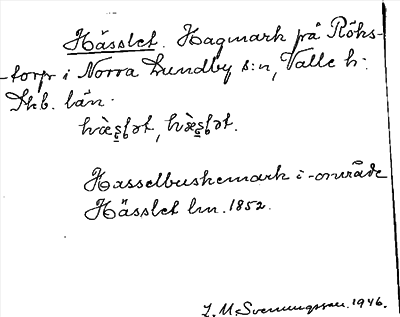 Hässlet. Hagmark på Röks-
torp i Norra Lundby s:n, Valle h:
Skb. län.
hæ̀s̹lət, hæ̀s̹lət.
Hasselbuskemark i -område
Hässlet lm. 1852.
I. M. Svenungsson. 1946.